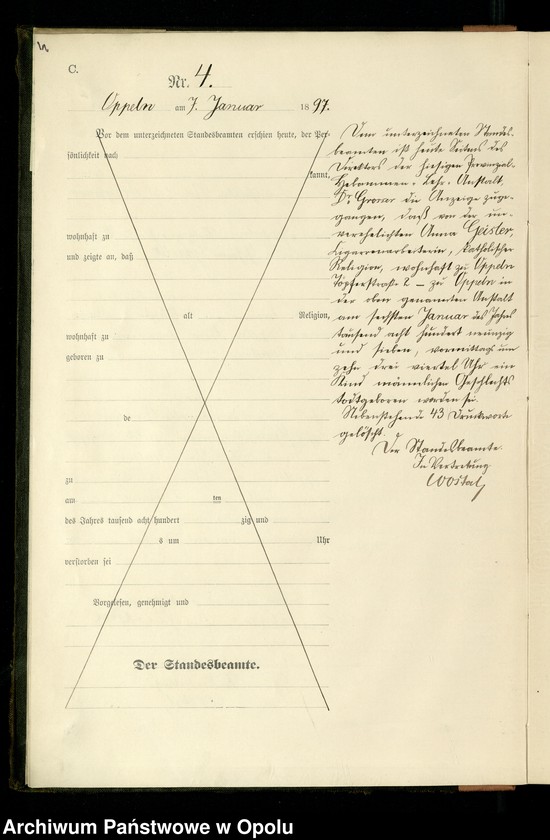 C.
Nr. 4.
Oppeln am 7. Januar 1897.
Vor dem unterzeichneten Standesbeamten erschien heute, der Per-
sönlichkeit nach
kannt,
wohnhaft zu
und zeigte an, daß
alt Religion,
wohnhaft zu
geboren zu
de
zu
am ten
des Jahres tausend acht hundert zig und
s um Uhr
verstorben sei
Vorgelesen, genehmigt und
Der Standesbeamte.
Dem unterzeichneten Standes-
beamten ist heute Seitens des
Direktors der hiesigen Provinzial-
Hebammen-Lehr-Anstalt,
Dr. die Anzeige zuge-
gangen, daß von der un-
verehelichten Anna Geister,
Cigarrenarbeiterin, katholischer
Religion, wohnhaft zu Oppeln
Töpferstraße 2 – zu Oppeln in
der oben genannten Anstalt
am sechsten Januar des Jahres
tausend acht hundert neunzig
und sieben, vormittags um
zehn drei viertel Uhr ein
Kind männlichen Geschlechts
todtgeboren worden sei.
Nebenstehende 43 Druckworte
gelöscht.
Der Standesbeamte.
In Vertretung
Archiwum Państwowe w Opolu